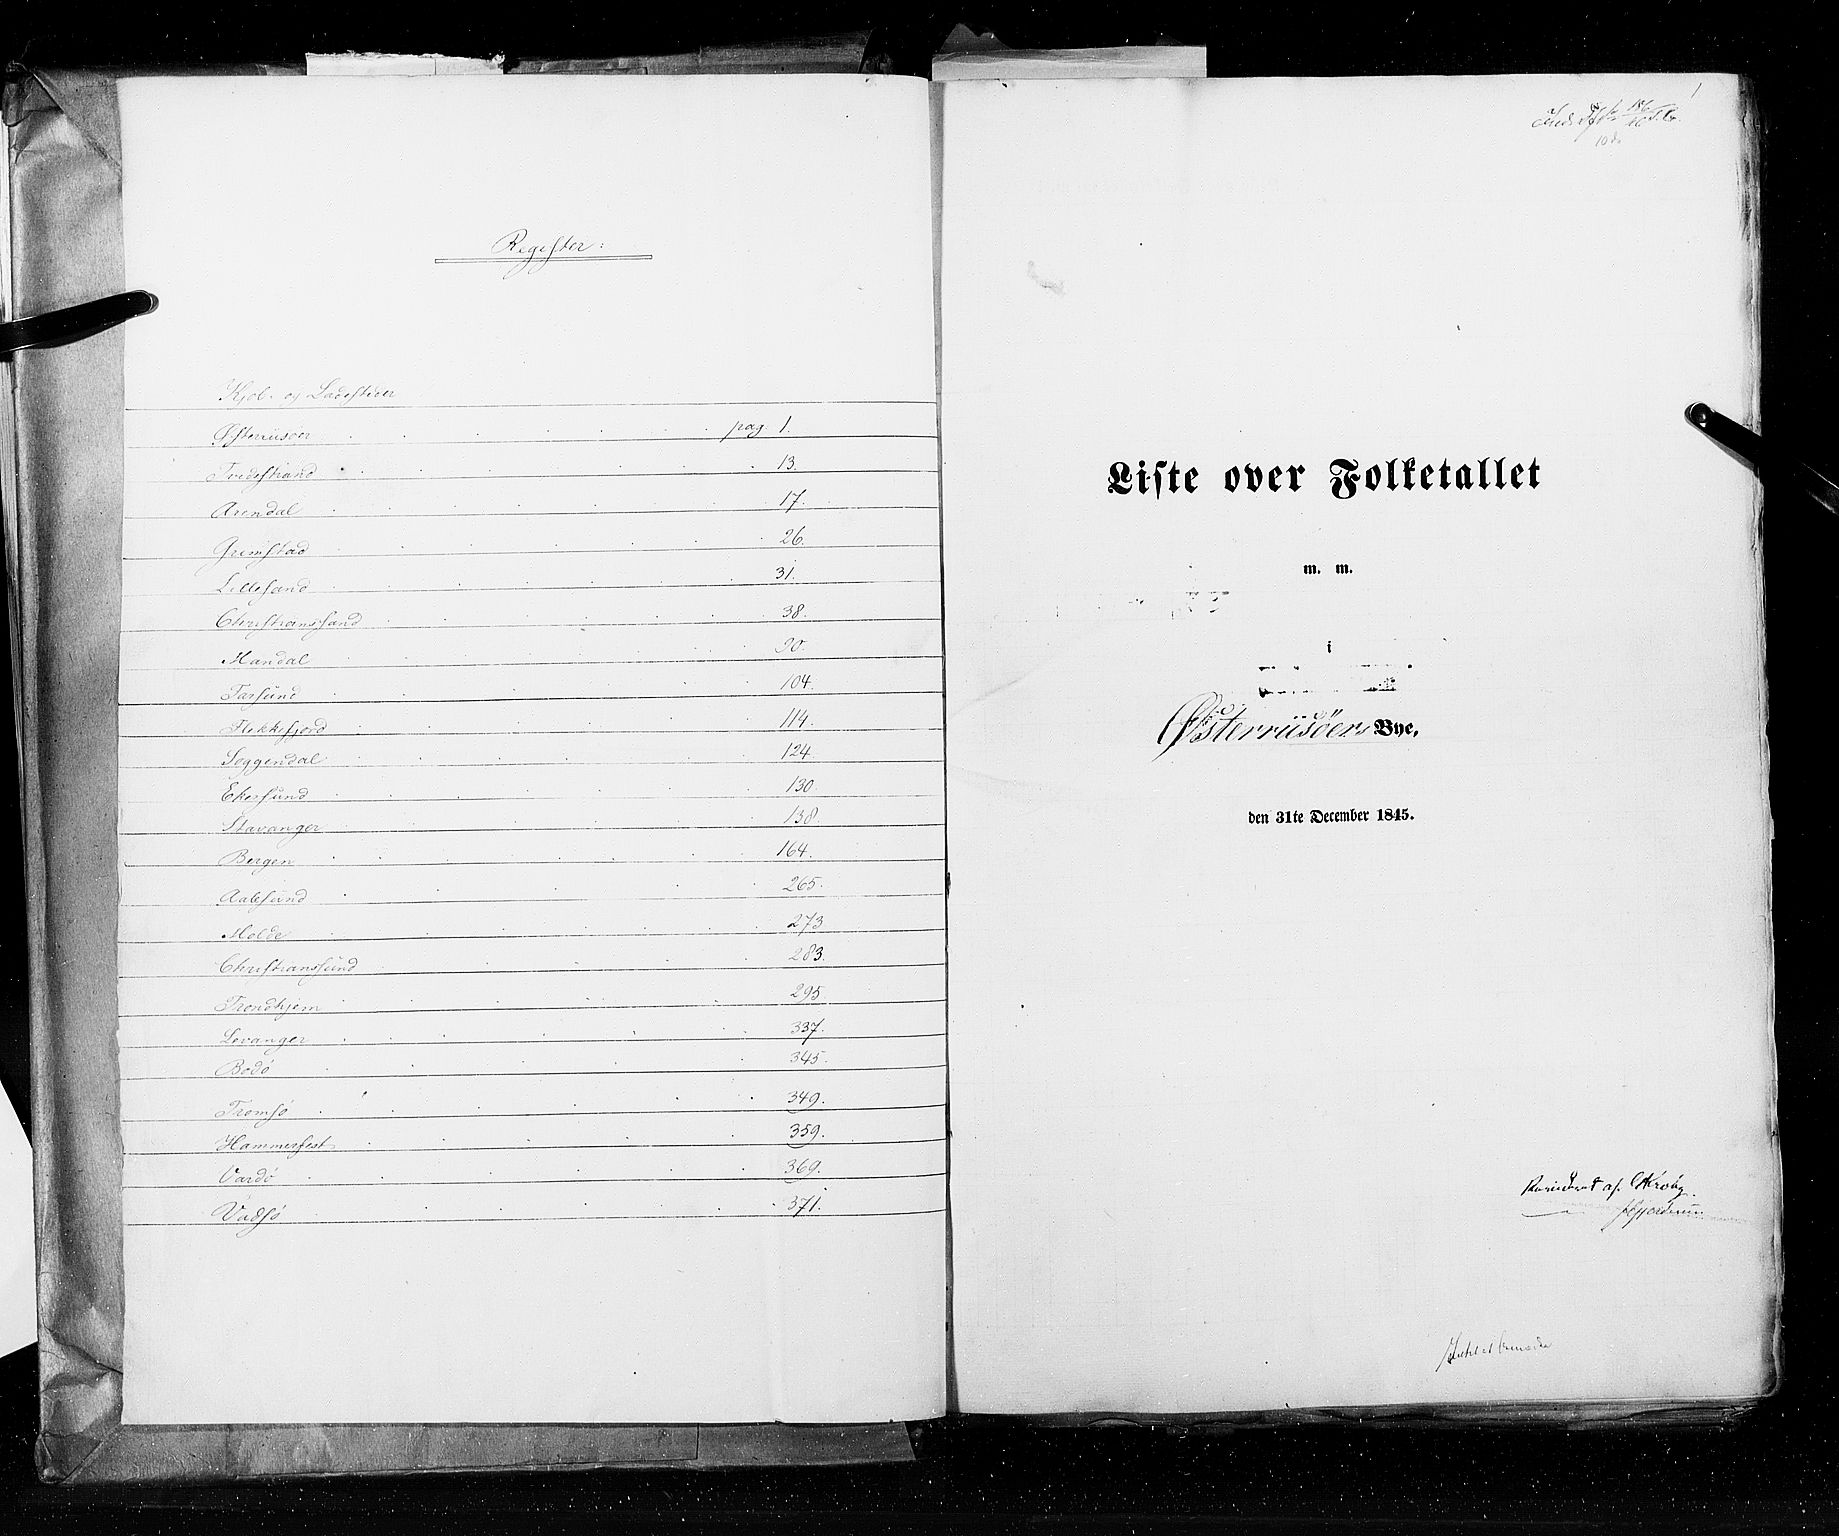 Register:
Kjøb- og Ladesteder
Østerriisöer pag. 1.
Tvedestrand 13.
Arendal 17.
Grimstad 26.
Lillesand 31.
Christianssand 38.
Mandal 90.
Farsund 104.
Flekkefjord 114.
Soggendal 124.
Ekersund 130
Stavanger 138.
Bergen 164.
Aalesund 265.
Molde 273
Christianssund 283.
Trondhjem 295
Levanger 337.
Bodö 345.
Tromsö 349.
Hammerfest 359.
Vardö 369.
Vadsö 371.
1
Liste over Folketallet
m. m.
i
Østerriisöers Bye,
den 31te December 1845.
Revideret af